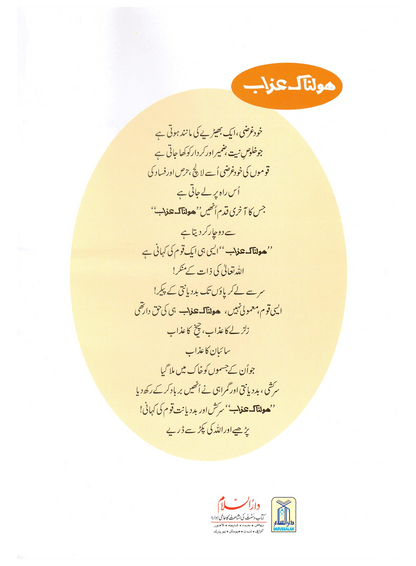 ہولناک عذاب
خودغرضی، ایک بھیڑیے کی مانند ہوتی ہے
جو خلوصِ نیت، ضمیر اور کردار کو کھا جاتی ہے
قوموں کی خودغرضی اُسے لالچ، حرص اور فساد کی
اُس راہ پر لے جاتی ہے
جس کا آخری قدم اُنھیں ”ہولناک عذاب“
سے دوچار کر دیتا ہے
”ہولناک عذاب“ ایسی ہی ایک قوم کی کہانی ہے
اللہ تعالیٰ کی ذات کے منکر!
سر سے لے کر پاؤں تک بددیانتی کے پیکر!
ایسی قوم، معمولی نہیں، ہولناک عذاب ہی کی حق دار تھی
زلزلے کا عذاب، چیخ کا عذاب
سائبان کا عذاب
جو اُن کے جسموں کو خاک میں ملا گیا
سرکشی، بددیانتی اور گمراہی نے اُنھیں برباد کر کے رکھ دیا
”ہولناک عذاب“ سرکش اور بددیانت قوم کی کہانی!
پڑھیے اور اللہ کی پکڑ سے ڈریے
دارالسلام
کتاب و سنت کی اشاعت کا عالمی ادارہ
دارالسلام
DARUSSALAM